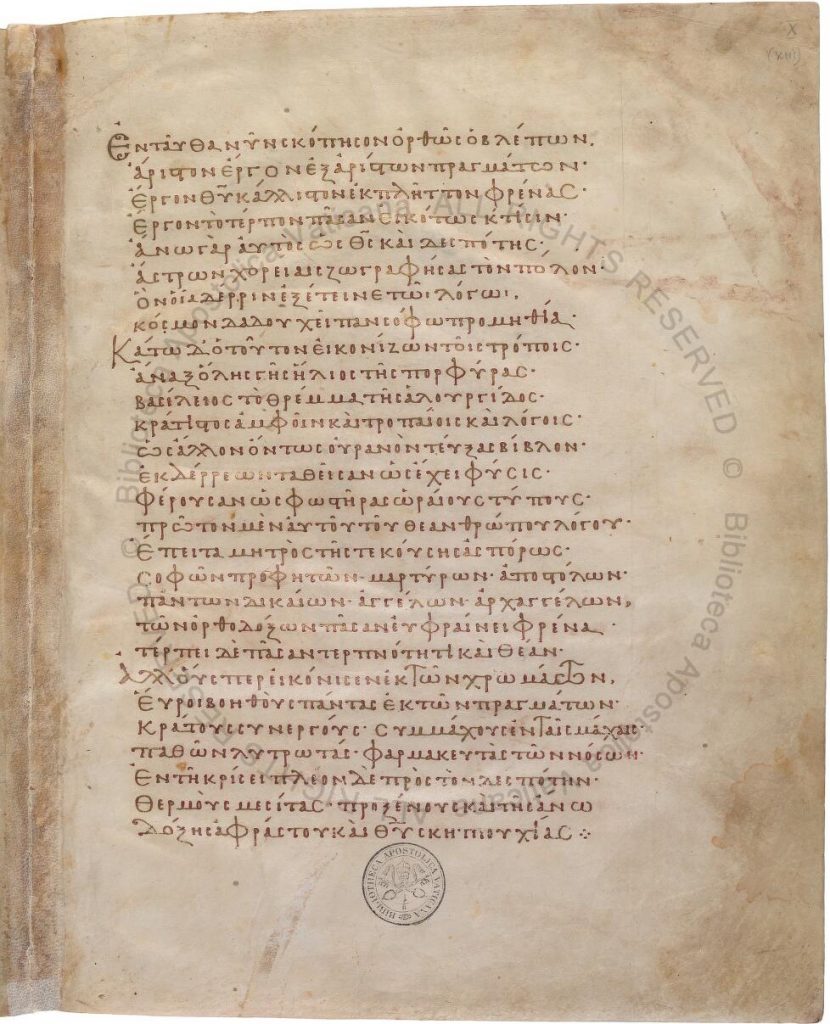 Ἐνταῦθα νῦν σκόπησον ὀρθῶς ὁ βλέπων.
ἄριστον ἔργον ἐξ ἀρίστων πραγμάτων·
ἔργον θ̅υ̅ κάλλιστον ἐκπλῆττον φρένας·
ἔργον τὸ τέρπον πᾶσαν εἰκότως κτίσιν·
ἄνω γὰρ αὐτὸς ὡς θ̅ς̅ καὶ δεσπότης·
ἄστρων χορείαις ζωγραφήσας τὸν πόλον·
ὃν οἷα δέρριν ἐξέτεινε τῶι λόγωι·
κόσμον δαδουχεῖ πανσόφω προμηθία·
Κάτω δ' ὁ τοῦτον εἰκονίζων τοῖς τρόποις·
ἄναξ ὅλης γῆς ἥλιος τῆς πορφύρας·
βασίλειος τὸ θρέμμα τῆς ἁλουργίδος·
κράτιστος ἀμφοῖν καὶ τροπαίοις καὶ λόγοις·
ὡς ἄλλον ὄντως οὐρανὸν τεύξας βίβλον·
ἐκ δέρρεων ταθεῖσαν ὡς ἔχει φύσις·
φέρουσαν ὡς φωστῆρας ὡραίους τύπους·
πρῶτον μὲν αὐτοῦ τοῦ θεανθρώπου λόγου·
ἔπειτα μητρὸς τῆς τεκούσης ἀσπόρως·
σοφῶν προφητῶν· μαρτύρων· ἀποστόλων·
πάντων δικαίων· ἀγγέλων· ἀρχαγγέλων,
τῶν ὀρθοδόξων πᾶσαν εὐφραίνει φρένα
τέρπει δὲ πᾶσαν τερπνότητι καὶ θέαν·
Ἀλλ' οὕσπερ εἰκόνισεν ἐκ τῶν χρωμάτων,
εὕροι βοηθοὺς πάντας ἐκ τῶν πραγμάτων·
κράτους συνεργούς· συμμάχους ἐν ταῖς μάχαις·
παθῶν λυτρωτάς· φαρμακευτὰς τῶν νόσων·
ἐν τῆ κρίσει πλέον δὲ πρὸς τὸν δεσπότην·
θερμοὺς μεσίτας· προξένους καὶ τῆς ἄνω
δόξης ἀφράστου καὶ θ̅υ̅ σκηπτουχίας
X
(XIII)
BIBLIOTHECA APOSTOLICA VATICANA
© Biblioteca Apostolica Vaticana ALL RIGHTS RESERVED © Biblioteca Apostolica Vaticana ALL RIGHTS RESERVED